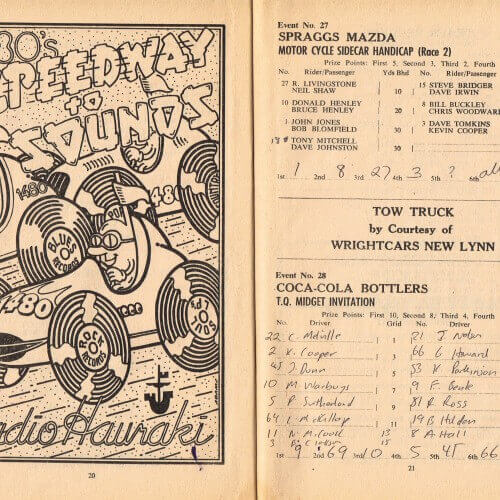 80's
SPEEDWAY
to
SOUNDS
1480
1480
POP
BLUES
RECORDS
SOUL
LPs
1480
ROCK
RECORDS
Radio Hauraki
20
Event No. 27
SPRAGGS MAZDA
MOTOR CYCLE SIDECAR HANDICAP (Race 2)
Prize Points: First 5, Second 3, Third 2, Fourth
No. Rider/Passenger Yds Bhd No. Rider/Passenger
27 R. LIVINGSTONE 15 STEVE BRIDGER
NEIL SHAW 10 DAVE IRWIN
10 DONALD HENLEY 8 BILL BUCKLEY
BRUCE HENLEY 20 CHRIS WOODWARD
1 JOHN JONES 3 DAVE TOMKINS
BOB BLOMFIELD 30 KEVIN COOPER
18 TONY MITCHELL
DAVE JOHNSTON 30
1st 1 2nd 8 3rd 27 4th 3 5th ? 6th all
TOW TRUCK
by Courtesy of
WRIGHTCARS NEW LYNN
Event No. 28
COCA-COLA BOTTLERS
T.Q. MIDGET INVITATION
Prize Points: First 10, Second 8, Third 4, Fourth
No. Driver Grid No. Driver
22 C. Melville 1 21 J
2 K. Cooper 3 66 G Howard
45 J. Dunn 5 53 K Parkinson
10 M 7 9 F
5 R Sutherland 9 81 R Ross
64 L McKillop 11 19 B Holden
11 N. McCook 13 8 A Hall
15
1st 9 2nd 69 3rd 10 4th 5 5th 45 6th 66
21